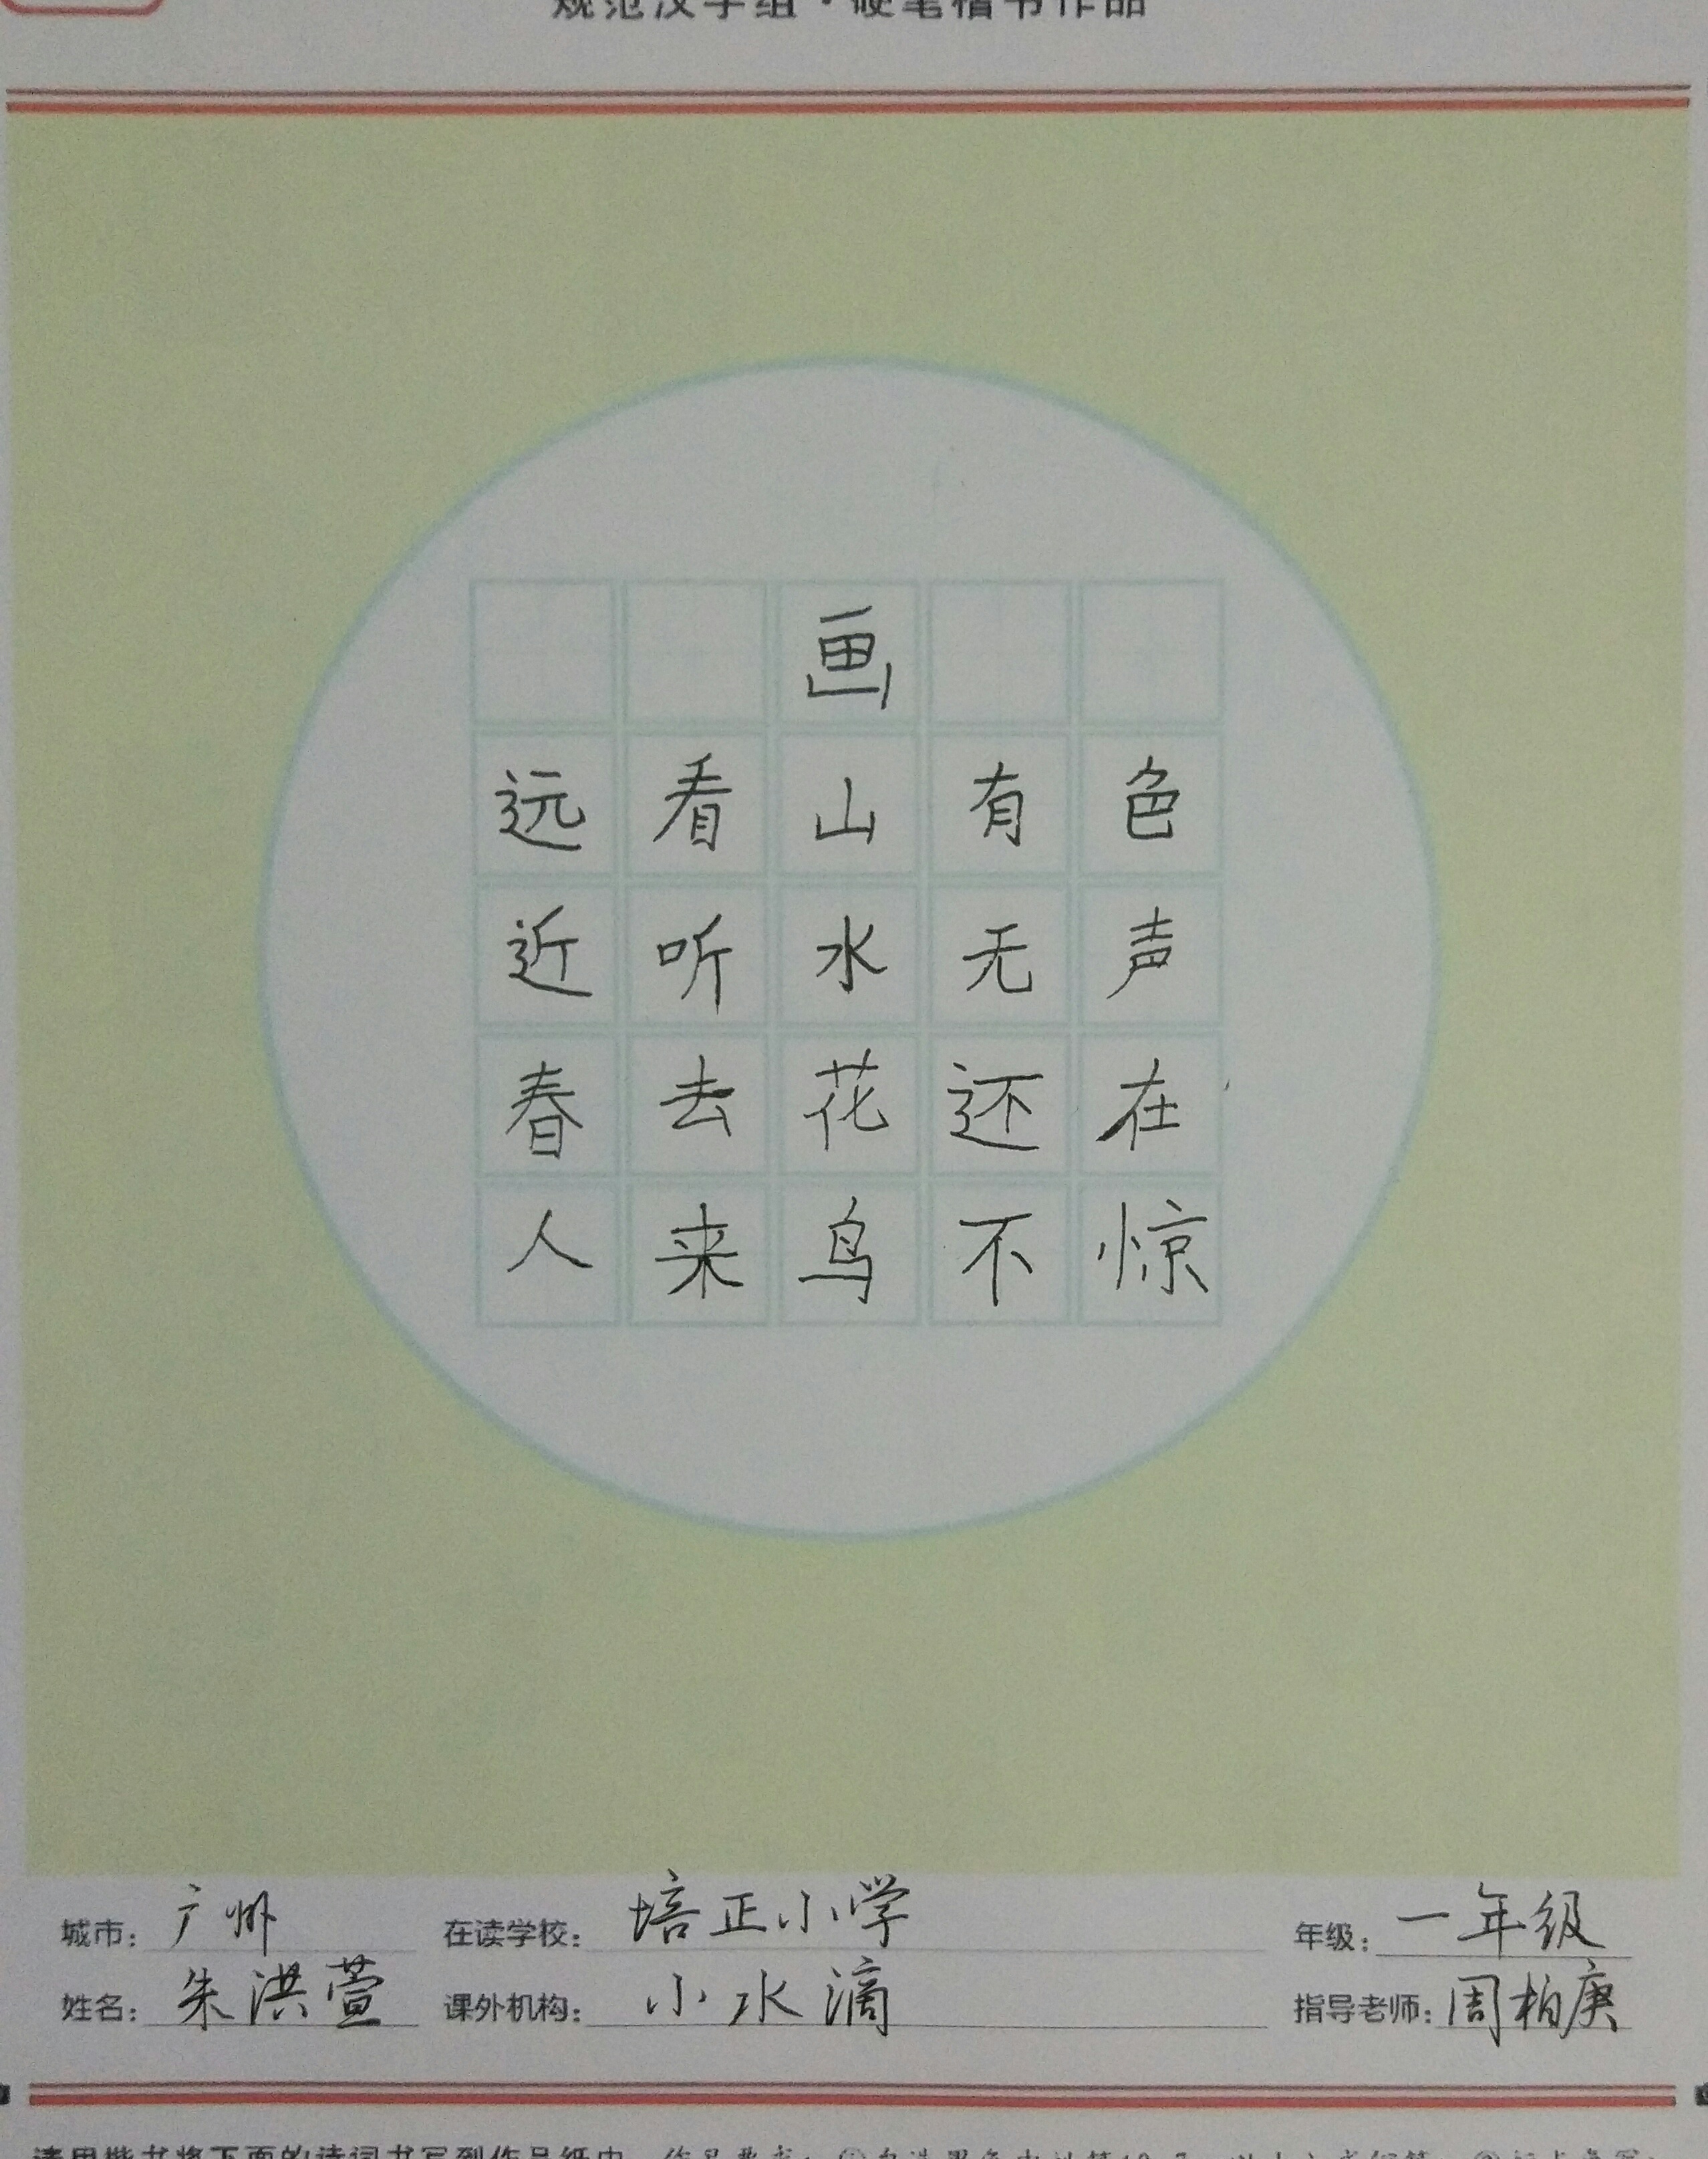 规范汉字组·硬笔楷书作品
画
远看山有色
近听水无声
春去花还在
人来鸟不惊
城市: 广州 在读学校: 培正小学 年级: 一年级
姓名: 朱洪萱 课外机构: 小水滴 指导老师: 周柏庚
请用楷书将下面的诗词书写到作品纸中